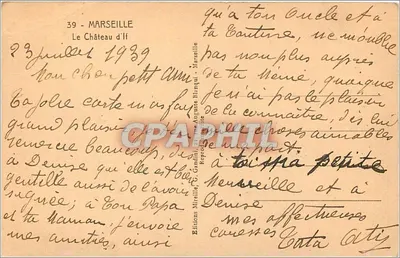 39 - MARSEILLE
Le Château d'If
23 juillet 1939
Mon cher petit Ami
Ta jolie carte m'as fait
grand plaisir
remercie beaucoup, dis
à Denise qu'elle est bien
gentille aussi de l'avoir
signée ; à ton Papa
et ta Maman, j'envoie
mes amitiés, ainsi
qu'à ton Oncle et à
ta Tantine, ne m'oublie
pas non plus auprès
de ta Mémé, quoique
je n'ai pas le plaisir
de la connaître, dis lui
choses aimables
à toi ma petite
Merveille et à
Denise
mes affectueuses
caresses Tata
Editions Mireille
CPAPHIL